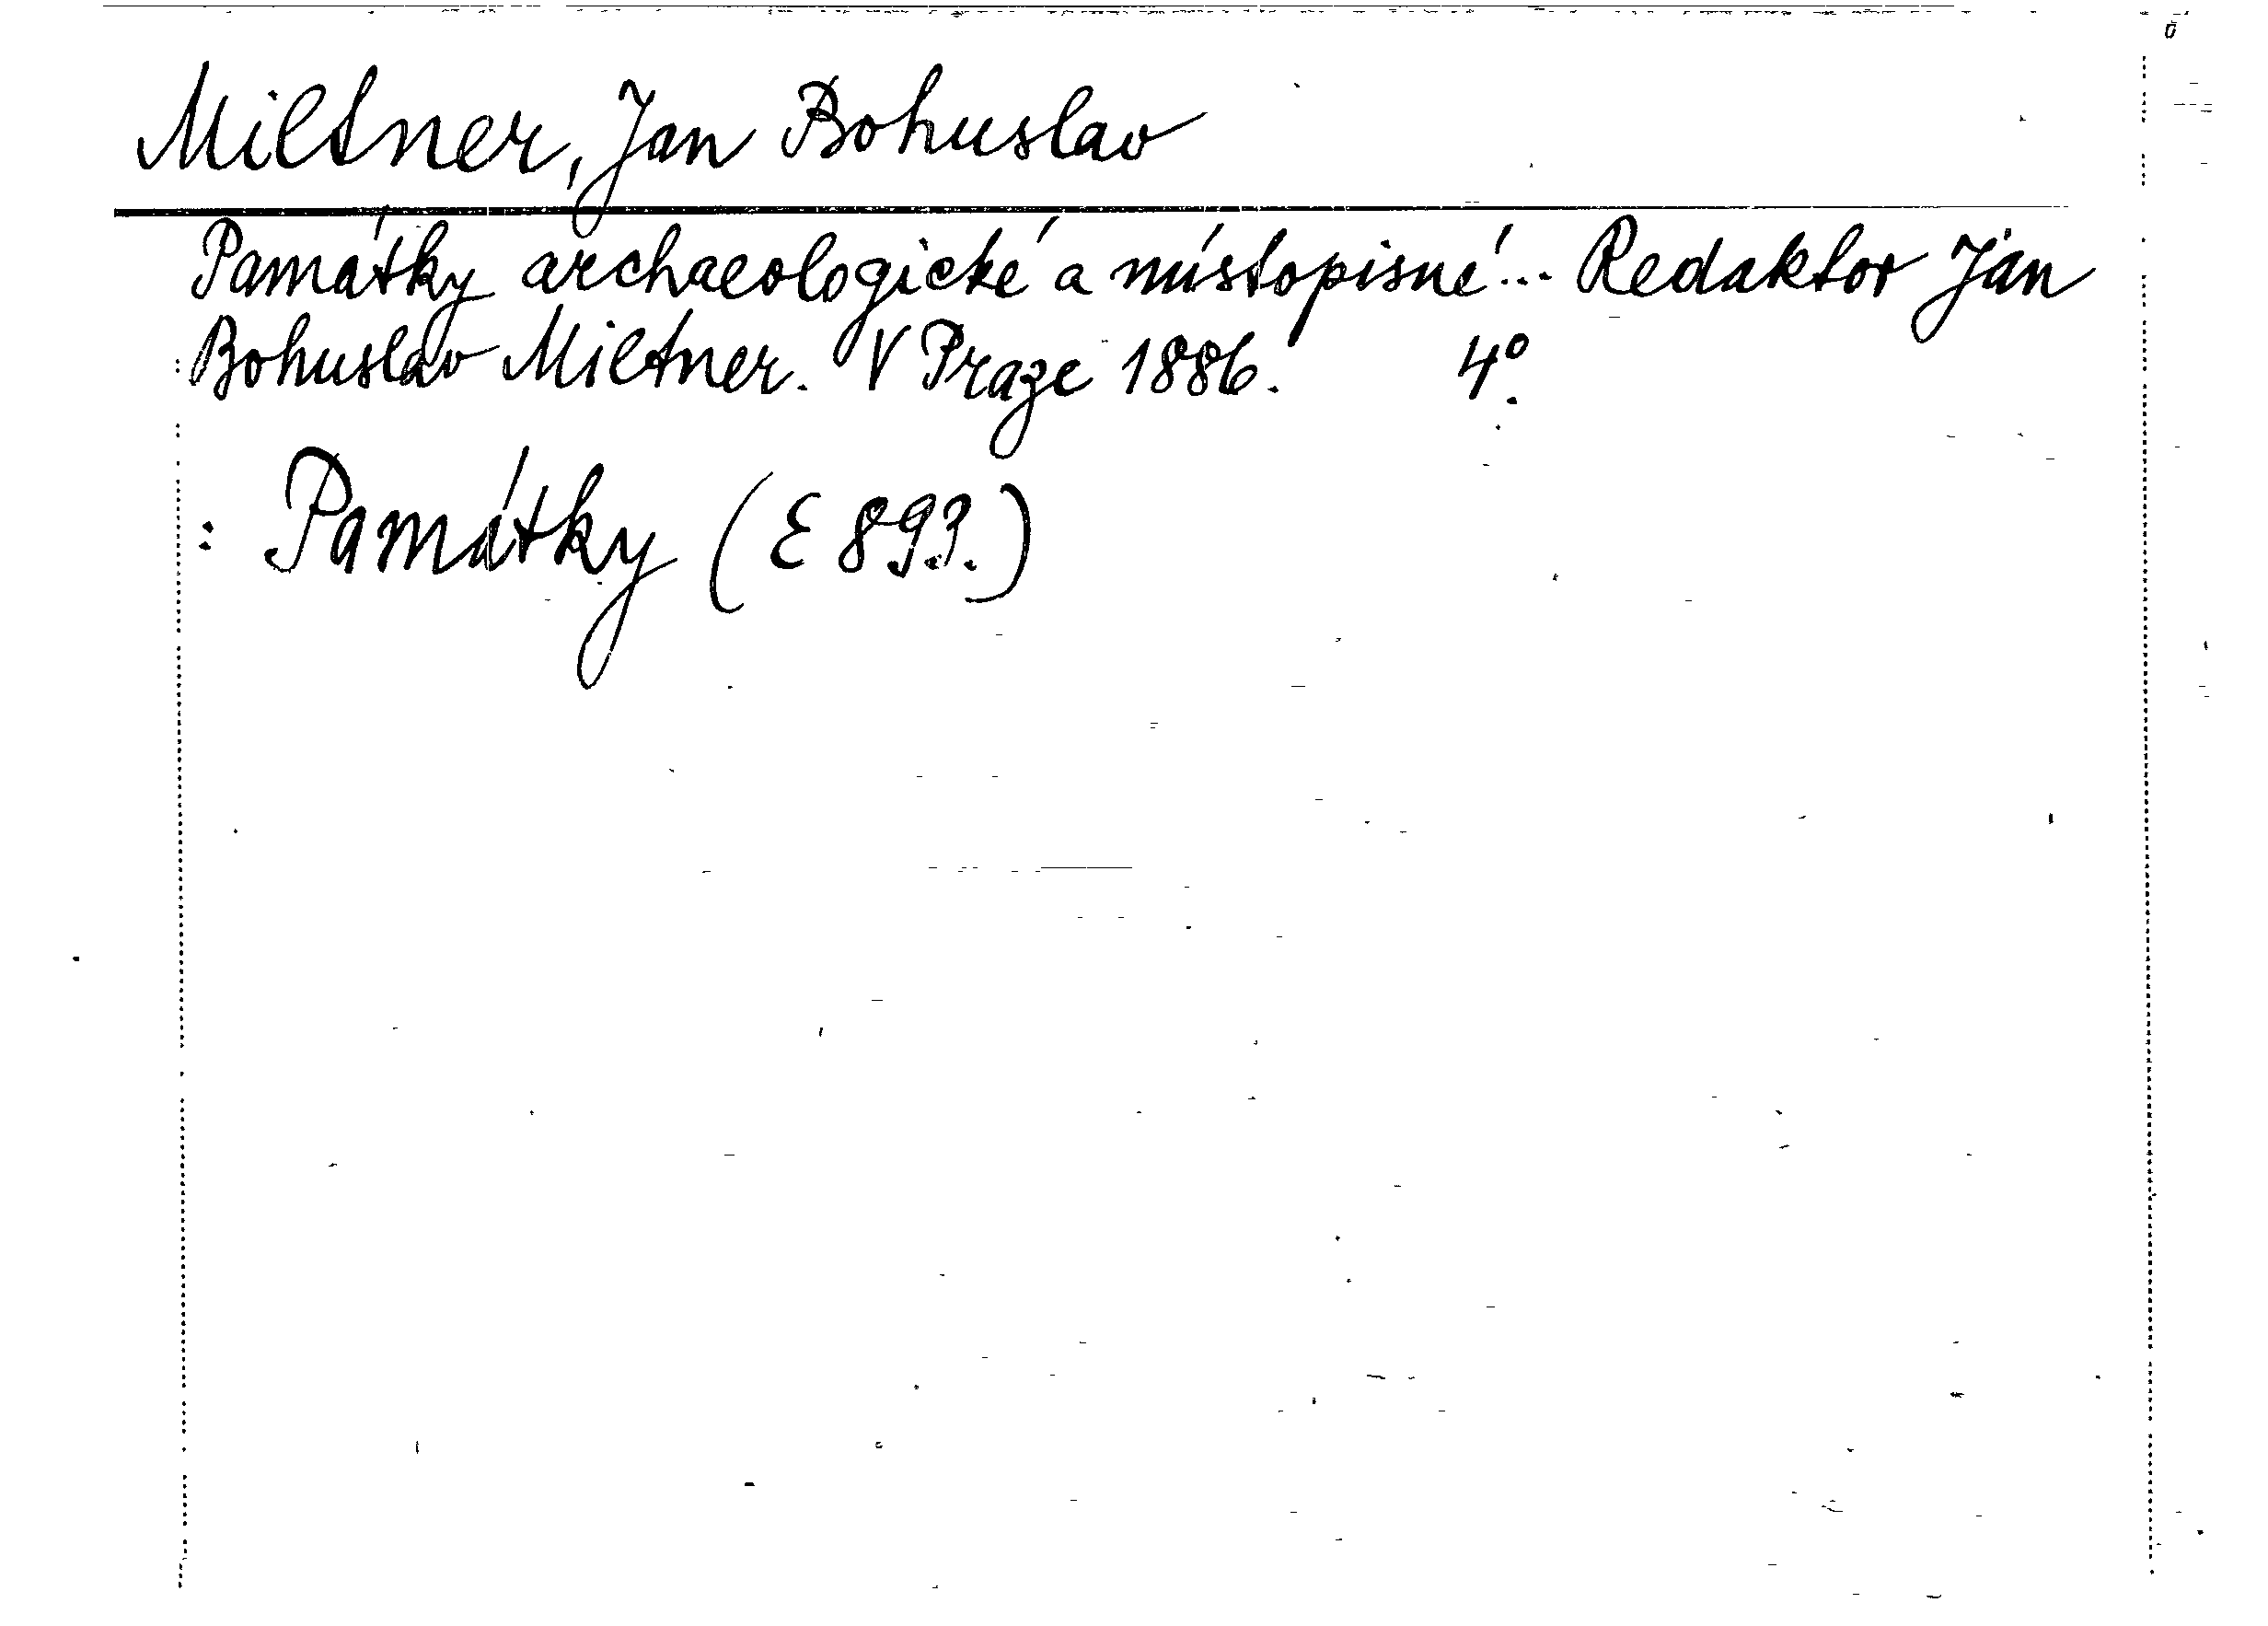 Miltner, Jan Bohuslav
Památky archaeologické a místopisné... Redaktor Jan
Bohuslav Miltner. V Praze 1886. 4°.
: Památky (E 893.)